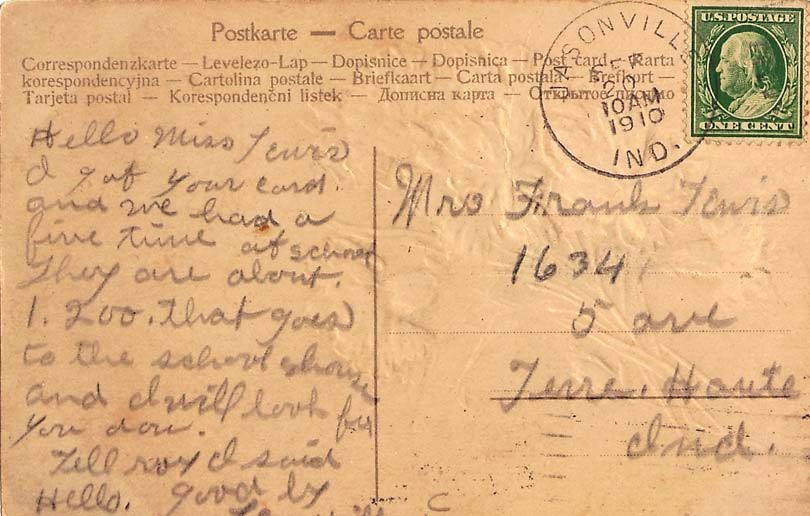 Postkarte — Carte postale
Correspondenzkarte — Levelezo-Lap — Dopisnice — Dopisnica — Post card — Karta
korespondencyjna — Cartolina postale — Briefkaart — Carta postala — Brefkort —
Tarjeta postal — Korespondenční listek — Дописна карта — Открытое письмо
JASONVILLE
10AM
1910
IND.
U.S. POSTAGE
ONE CENT
Hello Miss Lewis
I got your card.
and we had a
fine time at school
They are about.
1.200. that goes
to the school house
and I will look for
you down.
Tell roy I said
Hello. good by
Mrs Frank Lewis
1634
5 ave
Terre. Haute
Ind.